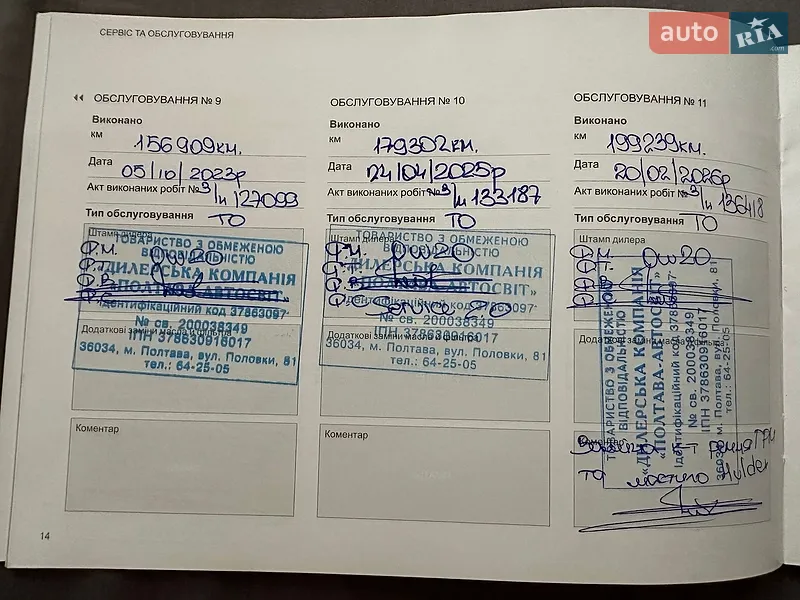 СЕРВІС ТА ОБСЛУГОВУВАННЯ
auto RIA .com
ОБСЛУГОВУВАННЯ № 9
Виконано
км 156909км.
Дата 05/10/2023р
Акт виконаних робіт № 9/н 127099
Тип обслуговування ТО
Штамп дилера
Ф.М. 0w20
ТОВАРИСТВО З ОБМЕЖЕНОЮ
ВІДПОВІДАЛЬНІСТЮ
«ДИЛЕРСЬКА КОМПАНІЯ
«ПОЛТАВА-АВТОСВІТ»
Ідентифікаційний код 37863097
№ св. 200038349
Додаткові заміни масла й фільтра
ІПН 378630916017
36034, м. Полтава, вул. Половки, 81
тел.: 64-25-05
Коментар
ОБСЛУГОВУВАННЯ № 10
Виконано
км 179302км.
Дата 24/04/2025р
Акт виконаних робіт № 9/н 133187
Тип обслуговування ТО
Штамп дилера
Ф.М. 0w20
ТОВАРИСТВО З ОБМЕЖЕНОЮ
ВІДПОВІДАЛЬНІСТЮ
«ДИЛЕРСЬКА КОМПАНІЯ
«ПОЛТАВА-АВТОСВІТ»
Ідентифікаційний код 37863097
Service
№ св. 200038349
Додаткові заміни масла й фільтра
ІПН 378630916017
36034, м. Полтава, вул. Половки, 81
тел.: 64-25-05
Коментар
ОБСЛУГОВУВАННЯ № 11
Виконано
км 199239км.
Дата 20/02/2026р
Акт виконаних робіт № 9/н 136418
Тип обслуговування ТО
Штамп дилера
Ф.М. 0w20
ТОВАРИСТВО З ОБМЕЖЕНОЮ
ВІДПОВІДАЛЬНІСТЮ
«ДИЛЕРСЬКА КОМПАНІЯ
«ПОЛТАВА-АВТОСВІТ»
Ідентифікаційний код 37863097
№ св. 200038349
ІПН 378630916017
36034, м. Полтава, вул. Половки, 81
тел.: 64-25-05
Додаткові заміни масла й фільтра
Коментар
к-т ременя ГРМ
та мастило
14